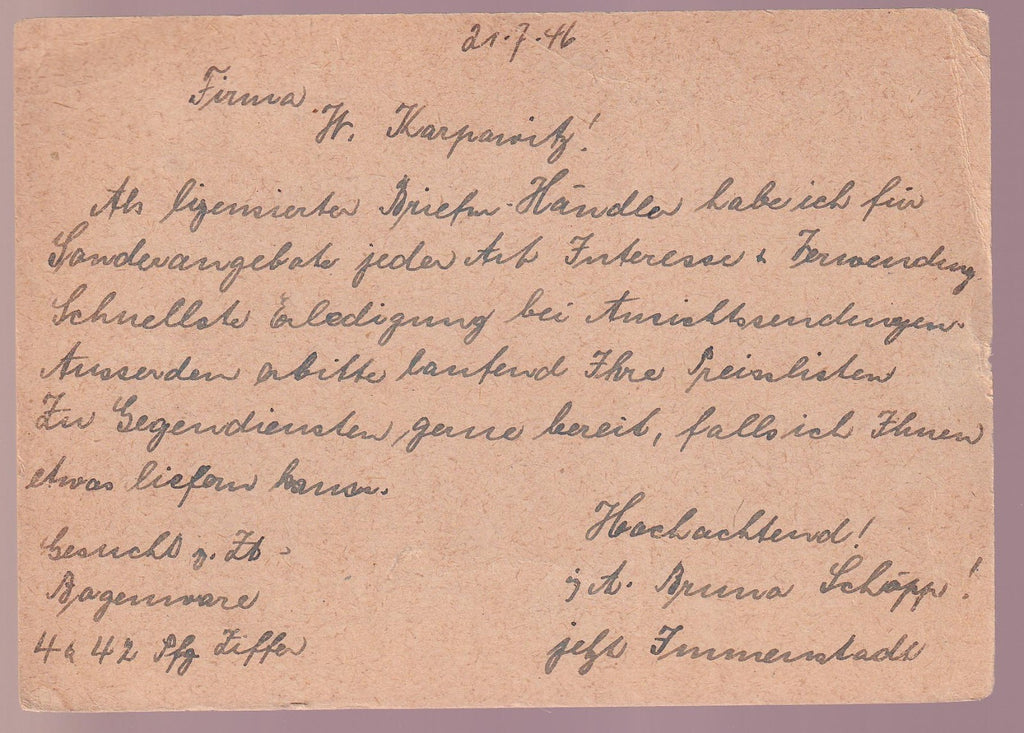 21.7.46
Firma
W. Karpowitz!
Als lizensierter Briefm-Händler habe ich für
Sonderangebote jeder Art Interesse & Verwendung
Schnellste Erledigung bei Ansichtssendungen.
Ausserden erbitte laufend Ihre Preislisten
Zu Gegendiensten gerne bereit, falls ich Ihnen
etwas liefern kann.
Gesucht z. Zt -
Bogenware
4 & 42 Pfg Ziffer
Hochachtend!
Bruno Schöpp!
jetzt Immenstadt